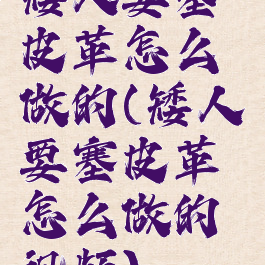 矮人要塞
皮革怎么
做的(矮人
要塞皮革
怎么做的
视频)